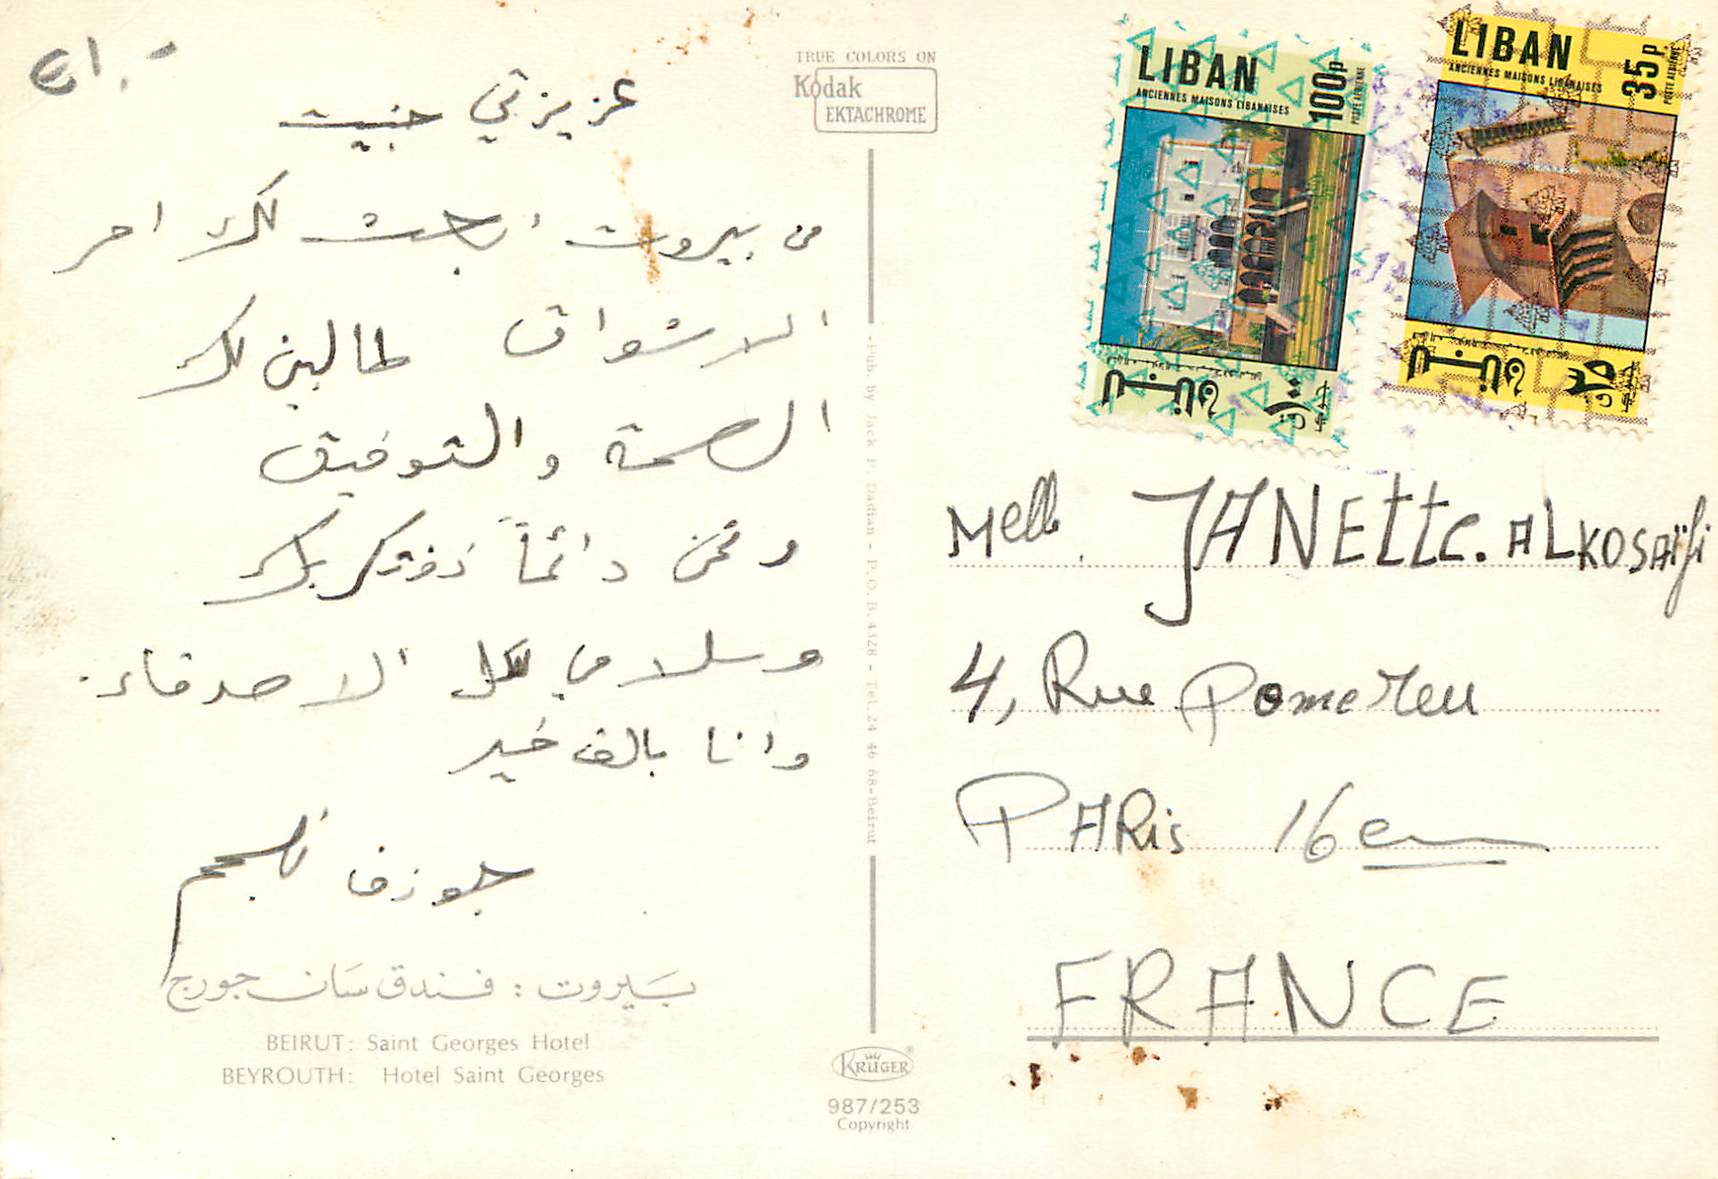 €1.-
عزيزتي جنيت
من بيروت ابعث لك احر
الاشواق طالبين لك
الصحة والتوفيق
ونحن دائماً نفتكر بك
وسلامي لكل الاصدقاء.
وانا بالف خير
جوزف نجم
بيروت: فندق سان جورج
BEIRUT: Saint Georges Hotel
BEYROUTH: Hotel Saint Georges
TRUE COLORS ON
Kodak
EKTACHROME
Pub. by Jack P. Dadian - P.O.B. 4328 - Tel. 24 46 68 - Beirut
KRÜGER
987/253
Copyright
LIBAN
100p
ANCIENNES MAISONS LIBANAISES
POSTE AERIENNE
لبنان
١٠٠ق
LIBAN
35p
ANCIENNES MAISONS LIBANAISES
POSTE AERIENNE
لبنان
٣٥ق
Melle. JANETTE. ALKOSAïfi
4, Rue Pomereu
PARis 16em
FRANCE